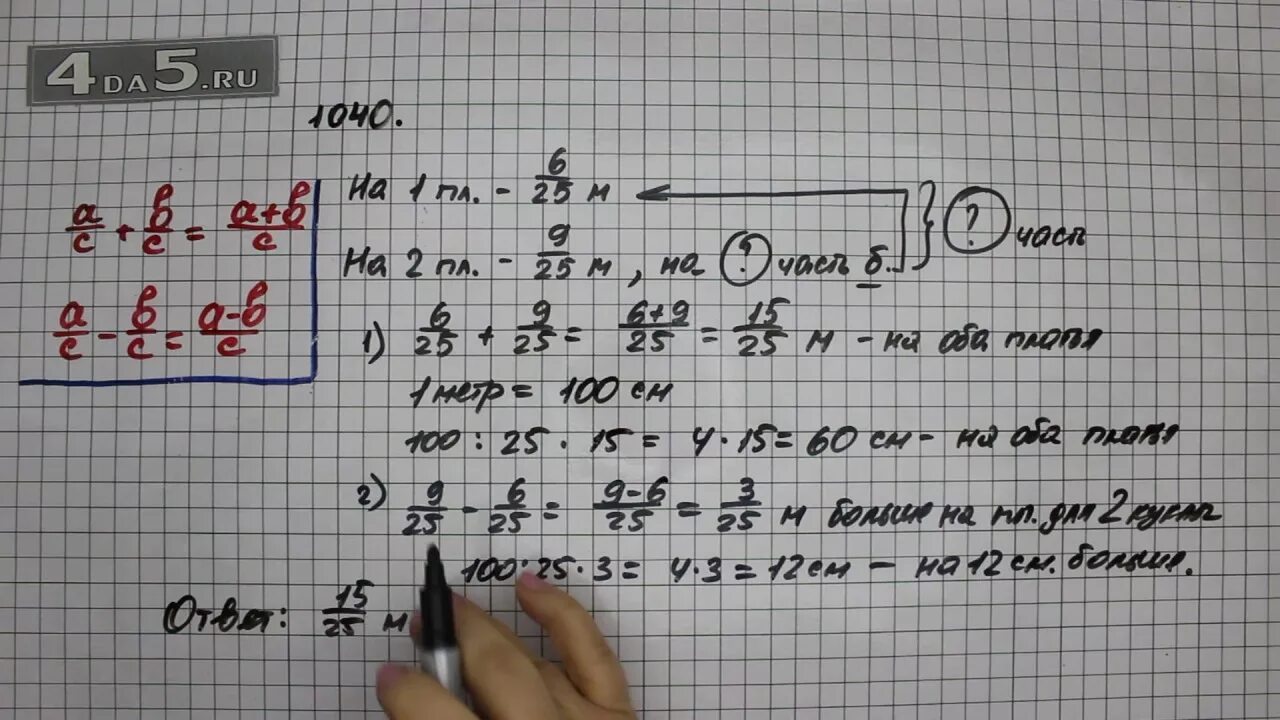 4DA5.RU
1040.
a/c + b/c = a+b/c
a/c - b/c = a-b/c
На 1 пл. - 6/25 м
На 2 пл. - 9/25 м, на ? часть б. } ? часть
1) 6/25 + 9/25 = 6+9/25 = 15/25 м - на оба платья
1 метр = 100 см
100 : 25 · 15 = 4 · 15 = 60 см - на оба платья
2) 9/25 - 6/25 = 9-6/25 = 3/25 м больше на пл. для 2 куклы
100 : 25 · 3 = 4 · 3 = 12 см - на 12 см. больше.
Ответ: 15/25 м